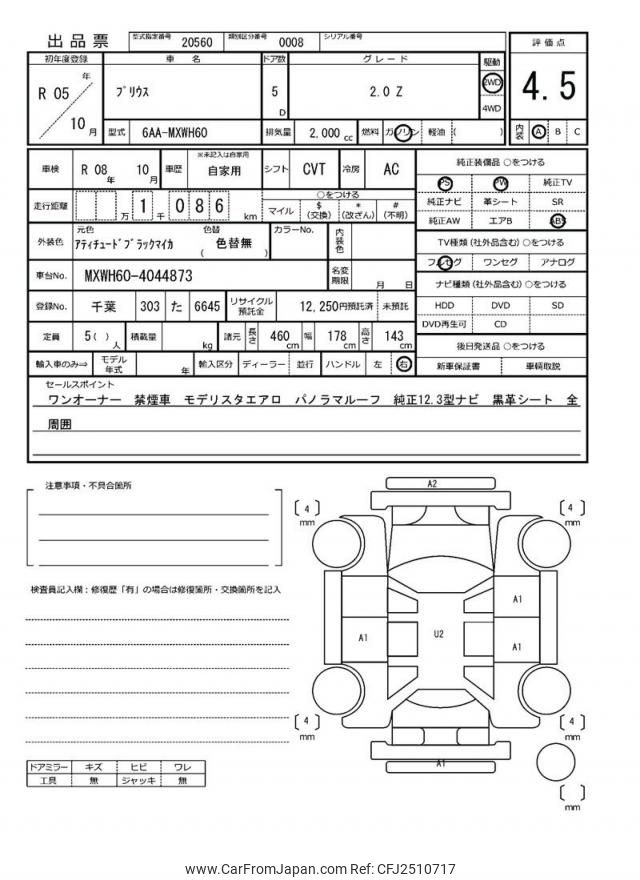 出品票
型式指定番号 20560 類別区分番号 0008 シリアル番号
初年度登録 車 名 ドア数 グレード 駆動 評価点
R 05 年 10 月
プリウス 5 D 2.0 Z 2WD 4WD
4.5
型式 6AA-MXWH60 排気量 2,000 cc 燃料 ガソリン 軽油 ( )
内装 A B C
車検 R 08 年 10 月 車歴 ※未記入は自家用 自家用 シフト CVT 冷房 AC
純正装備品 ○をつける
PS PW 純正TV
純正ナビ 革シート SR
純正AW エアB ABS
走行距離 万 1 千 0 8 6 km
○をつける
マイル $ (交換) * (改ざん) # (不明)
外装色 元色 アティチュードブラックマイカ 色替 ( 色替無 ) カラーNo. 内装色
TV種類 (社外品含む) ○をつける
フルセグ ワンセグ アナログ
車台No. MXWH60-4044873 名変期限 月 日
ナビ種類 (社外品含む) ○をつける
HDD DVD SD
DVD再生可 CD
登録No. 千葉 303 た 6645 リサイクル預託金 12,250円預託済 未預託
定員 5( ) 人 積載量 kg 諸元 長さ 460 cm 幅 178 cm 高さ 143 cm
後日発送品 ○をつける
新車保証書 車輌取説
輸入車のみ⇒ モデル年式 年 輸入区分 ディーラー 並行 ハンドル 左 右
セールスポイント
ワンオーナー 禁煙車 モデリスタエアロ パノラマルーフ 純正12.3型ナビ 黒革シート 全
周囲
注意事項・不具合箇所
検査員記入欄：修復歴「有」の場合は修復箇所・交換箇所を記入
A2
4 mm
4 mm
A1
A1
U2
A1
4 mm
4 mm
A1
mm
ドアミラー キズ ヒビ ワレ
工具 無 ジャッキ 無
www.CarFromJapan.com Ref: CFJ2510717